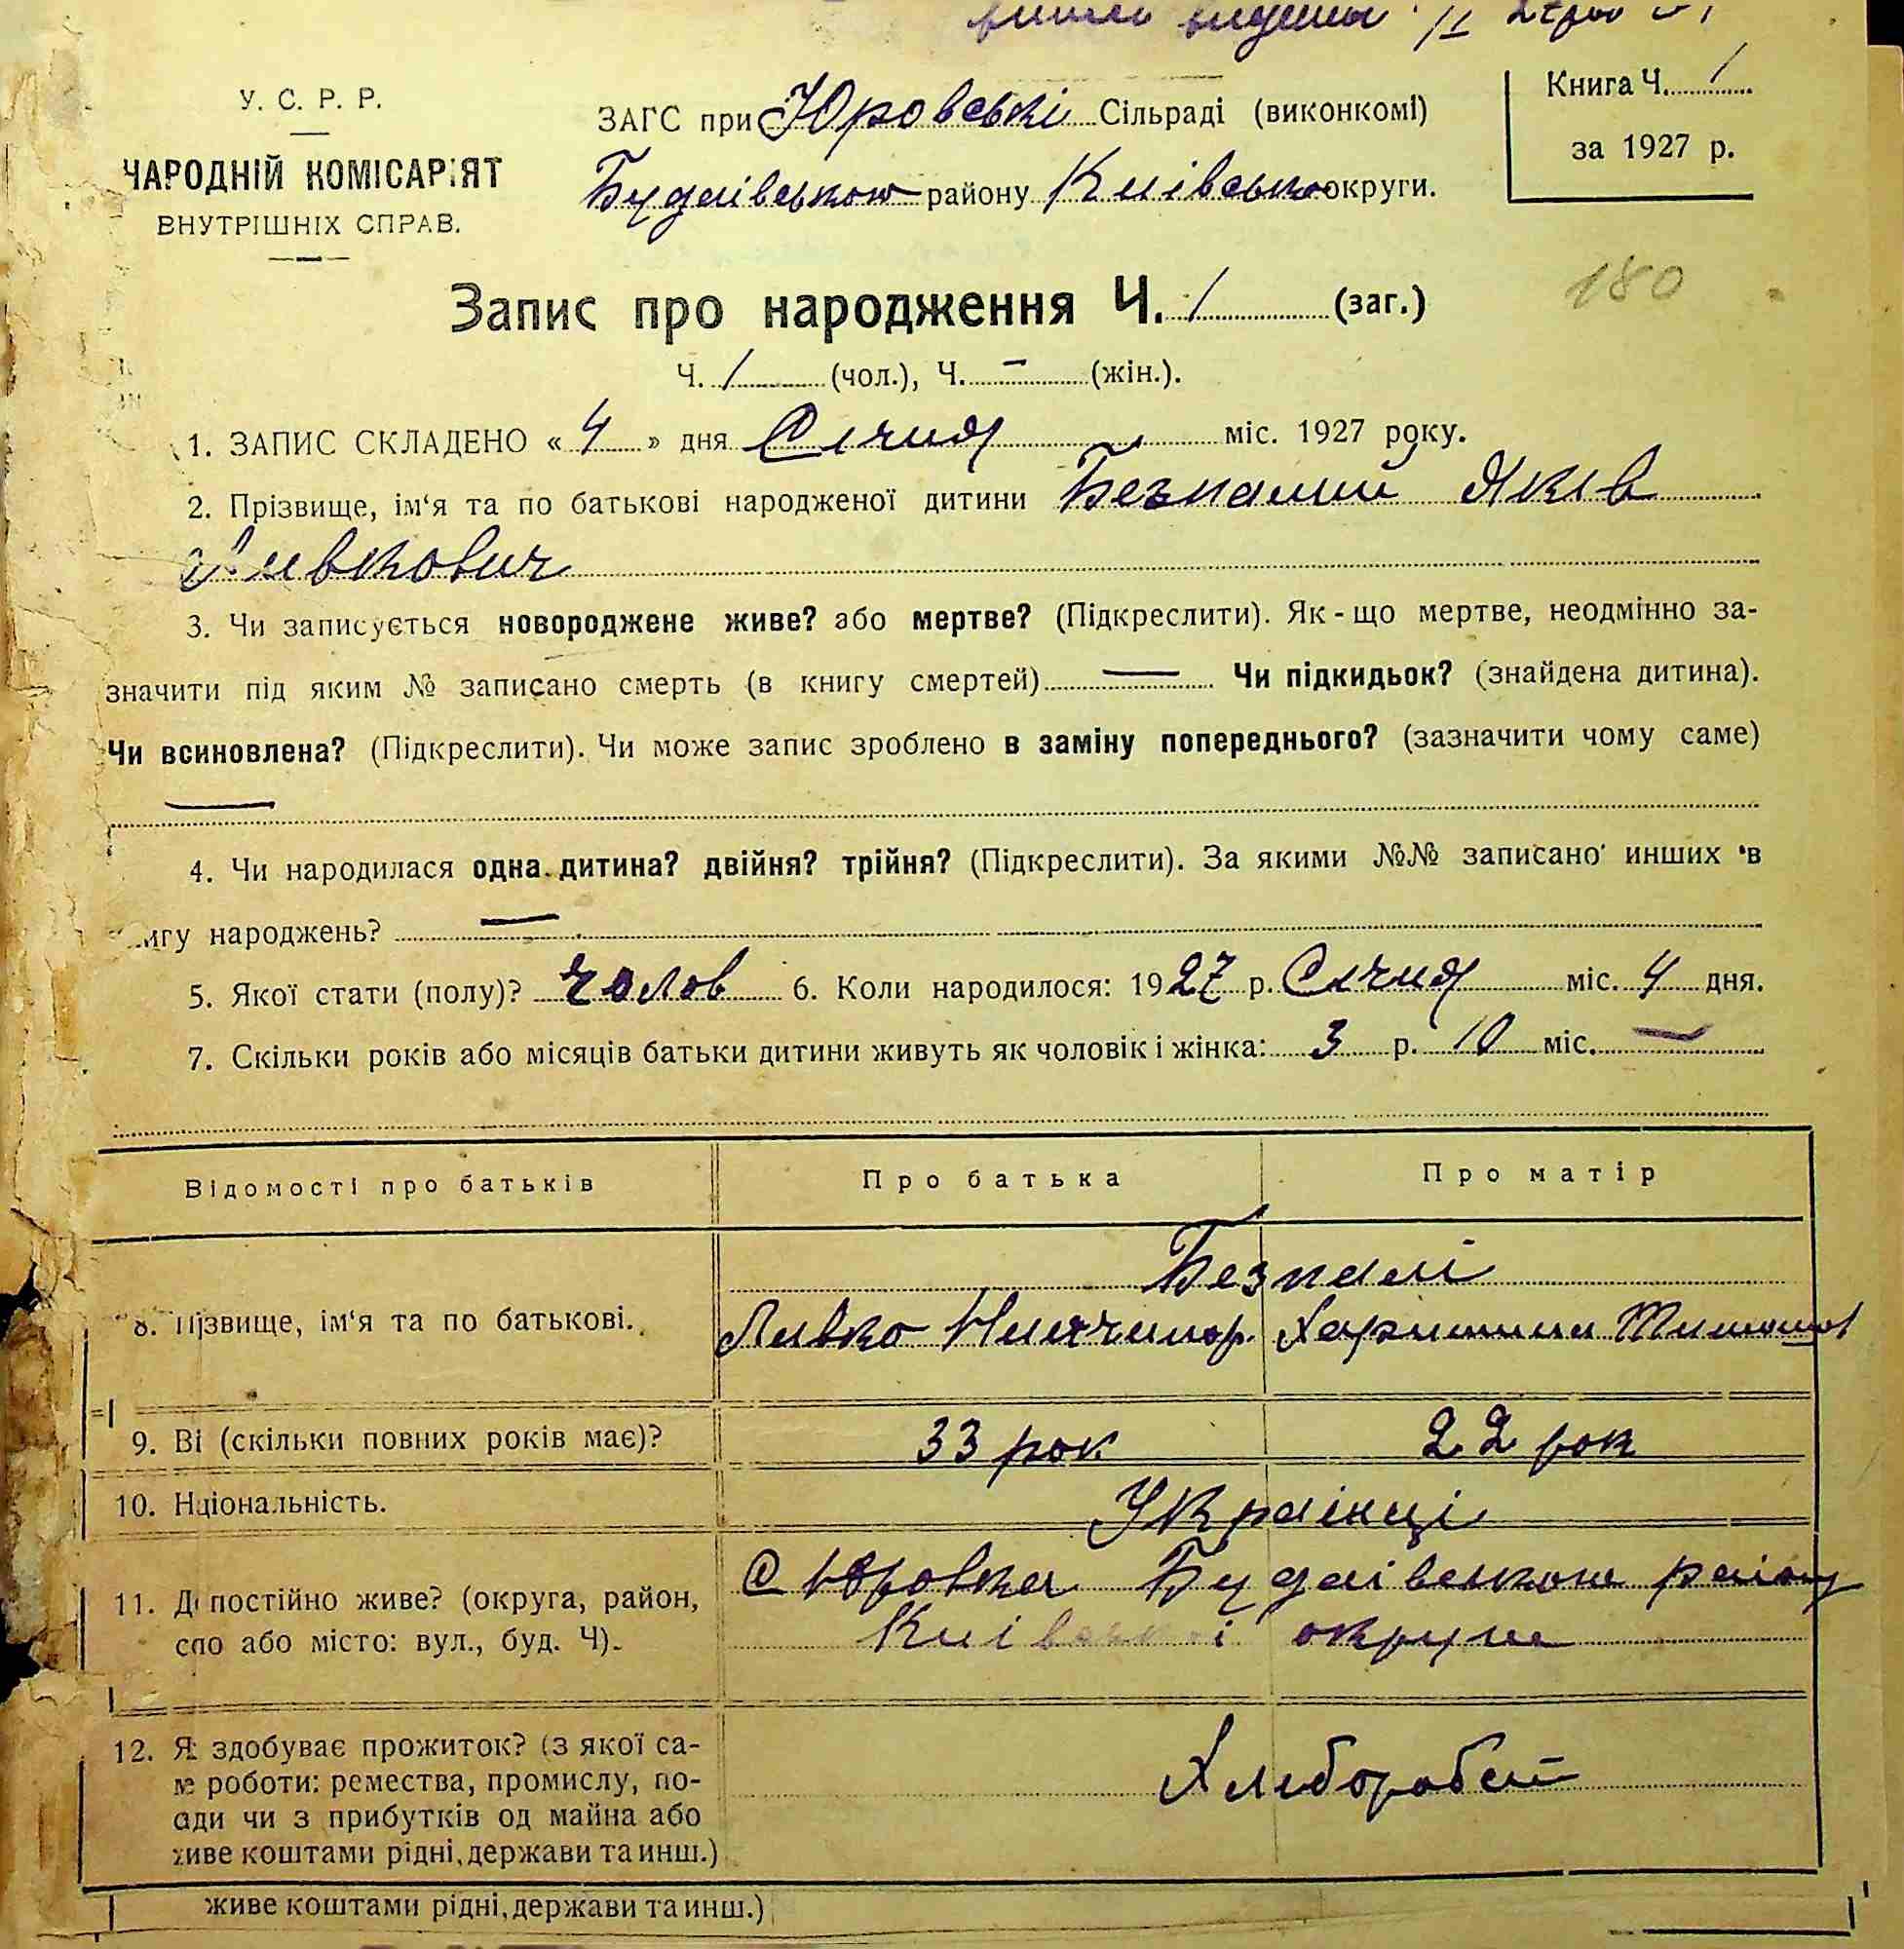 У. С. Р. Р.
ЧАРОДНІЙ КОМІСАРІЯТ
ВНУТРІШНІХ СПРАВ.
ЗАГС при Юровські Сільраді (виконкомі)
Будаівською району Киівсько округи.
Книга Ч. 1
за 1927 р.
180
Запис про народження Ч. 1 (заг.)
Ч. 1 (чол.), Ч. – (жін.).
1. ЗАПИС СКЛАДЕНО « 4 » дня Січня міс. 1927 року.
2. Прізвище, ім'я та по батькові народженої дитини Безпалий Яків
Ливкович
3. Чи записується новороджене живе? або мертве? (Підкреслити). Як-що мертве, неодмінно за-
значити під яким № записано смерть (в книгу смертей) — Чи підкидьок? (знайдена дитина).
Чи всиновлена? (Підкреслити). Чи може запис зроблено в заміну попереднього? (зазначити чому саме)
—
4. Чи народилася одна дитина? двійня? трійня? (Підкреслити). За якими №№ записано инших в
игу народжень? —
5. Якої стати (полу)? чолов 6. Коли народилося: 1927 р. Січня міс. 4 дня.
7. Скільки років або місяців батьки дитини живуть як чоловік і жінка: 3 р. 10 міс. —
Відомості про батьків Про батька Про матір
Безпалі
8. Пізвище, ім'я та по батькові. Ливко Ничипор. Харитина Тимошов
9. Ві (скільки повних років має)? 33 рок 22 рок
10. Нціональність. Украінці
11. Д постійно живе? (округа, район, С Юровка Будаівською району
спо або місто: вул., буд. Ч). Киівської округи
12. Я здобуває прожиток? (з якої са-
ме роботи: ремества, промислу, по-
ади чи з прибутків од майна або Хліборобст
живе коштами рідні, держави та инш.)
живе коштами рідні, держави та инш.)